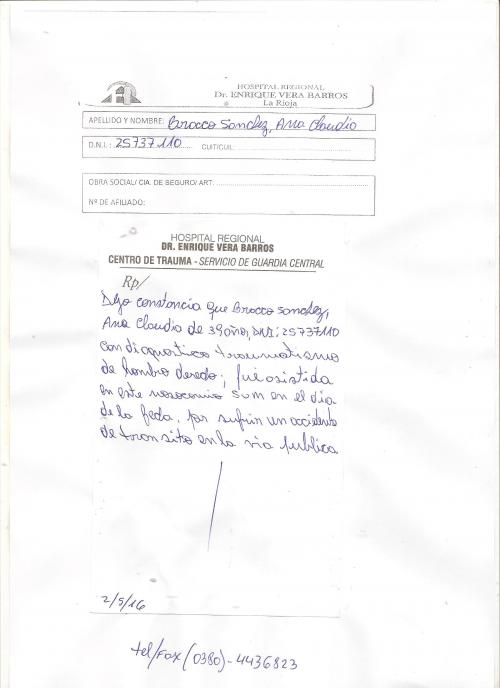 HOSPITAL REGIONAL
Dr. ENRIQUE VERA BARROS
La Rioja
APELLIDO Y NOMBRE: Brocco Sanchez, Ana Claudia
D.N.I.: 25737110 CUIT/CUIL:
OBRA SOCIAL/ CIA. DE SEGURO/ ART:
Nº DE AFILIADO:
HOSPITAL REGIONAL
DR. ENRIQUE VERA BARROS
CENTRO DE TRAUMA - SERVICIO DE GUARDIA CENTRAL
Rp/
Dejo constancia que Brocco Sanchez,
Ana Claudia de 39 años, DNI: 25737110
con diagnostico traumatismo
de hombro derecho, fue asistida
en este nosocomio en el dia
de la fecha, por sufrir un accidente
de transito en la via publica
2/5/16
tel/Fax (0380)-4436823